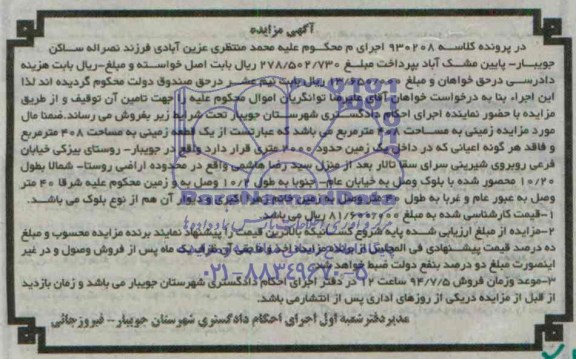 آگهی مزایده
در پرونده کلاسه ۹۳۰۲۰۸ اجرای م محکوم علیه محمد منتظری عزین آبادی فرزند نصراله ساکن
جویبار- پایین مشک آباد بپرداخت مبلغ ۲۷۸/۵۰۲/۷۳۰ ریال بابت اصل خواسته و مبلغ-ریال بابت هزینه
دادرسی درحق خواهان و مبلغ ریال بابت نیم عشر درحق صندوق دولت محکوم گردیده اند لذا
این اجراء بنا به درخواست خواهان آقای علیرضا توانگریان اموال محکوم علیه را جهت تامین آن توقیف و از طریق
مزایده با حضور نماینده اجرای احکام دادگستری شهرستان جویبار تحت شرایط زیر بفروش می رساند.ضمنا مال
مورد مزایده زمینی به مساحت ۴۰۸ مترمربع می باشد که عبارتست از یک قطعه زمینی به مساحت ۴۰۸ مترمربع
و فاقد هر گونه اعیانی که در داخل یک زمین حدود ۲۰۰۰ متری قرار دارد واقع در جویبار- روستای بیزکی خیابان
فرعی روبروی شیرینی سرای سقا تالار بعد از منزل سید رضا هاشمی واقع در محدوده اراضی روستا- شمالا بطول
۱۰/۲۰ محصور شده با بلوک وصل به خیابان عام- جنوبا به طول ۱۰/۲ وصل به و زمین محکوم علیه شرقا ۴۰ متر
وصل به عبور عام و غربا به طول ۴۰ متر وصل به زمین خانم زهرا اکبری و دیوار آن هم از نوع بلوک می باشد.
۱-قیمت کارشناسی شده به مبلغ ۸۱/۶۰۰/۰۰۰ ریال می باشد.
۲-مزایده از مبلغ ارزیابی شده پایه شروع کسیکه بالاترین قیمت را پیشنهاد نمایند برنده مزایده محسوب و مبلغ
ده درصد قیمت پیشنهادی فی المجلس از برنده مزایده اخذ و مابقی آن ظرف یک ماه پس از فروش وصول و در غیر
اینصورت مبلغ ده درصد بنفع دولت ضبط خواهد شد.
۳-موعد وزمان فروش ۹۴/۷/۵ ساعت ۱۲ در دفتر اجرای احکام دادگستری شهرستان جویبار می باشد و زمان بازدید
از قبل از مزایده دریکی از روزهای اداری پس از انتشارمی باشد.
مدیردفترشعبه اول اجرای احکام دادگستری شهرستان جویبار- فیروزجائی